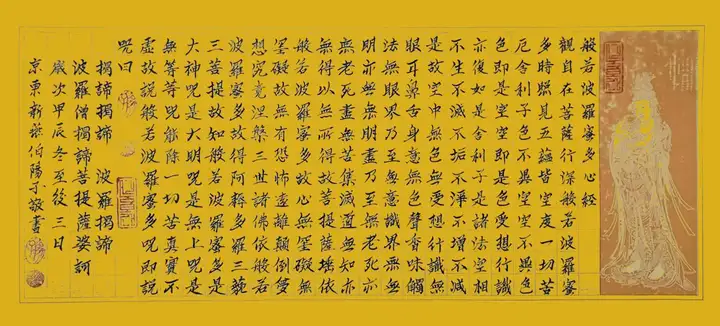 般若波羅蜜多心經
觀自在菩薩行深般若波羅蜜
多時照見五蘊皆空度一切苦
厄舍利子色不異空空不異色
色即是空空即是色受想行識
亦復如是舍利子是諸法空相
不生不滅不垢不淨不增不減
是故空中無色無受想行識無
眼耳鼻舌身意無色聲香味觸
法無眼界乃至無意識界無無
明亦無無明盡乃至無老死亦
無老死盡無苦集滅道無知亦
無得以無所得故菩提薩埵依
般若波羅蜜多故心無罣礙無
罣礙故無有恐怖遠離顛倒夢
想究竟涅槃三世諸佛依般若
波羅蜜多故得阿耨多羅三藐
三菩提故知般若波羅蜜多是
大神呪是大明呪是無上呪是
無等等呪能除一切苦真實不
虛故說般若波羅蜜多呪即說
呪曰
揭諦揭諦 波羅揭諦
波羅僧揭諦菩提薩婆訶
歲次甲辰冬至後三日
京東新伯陽子敬書